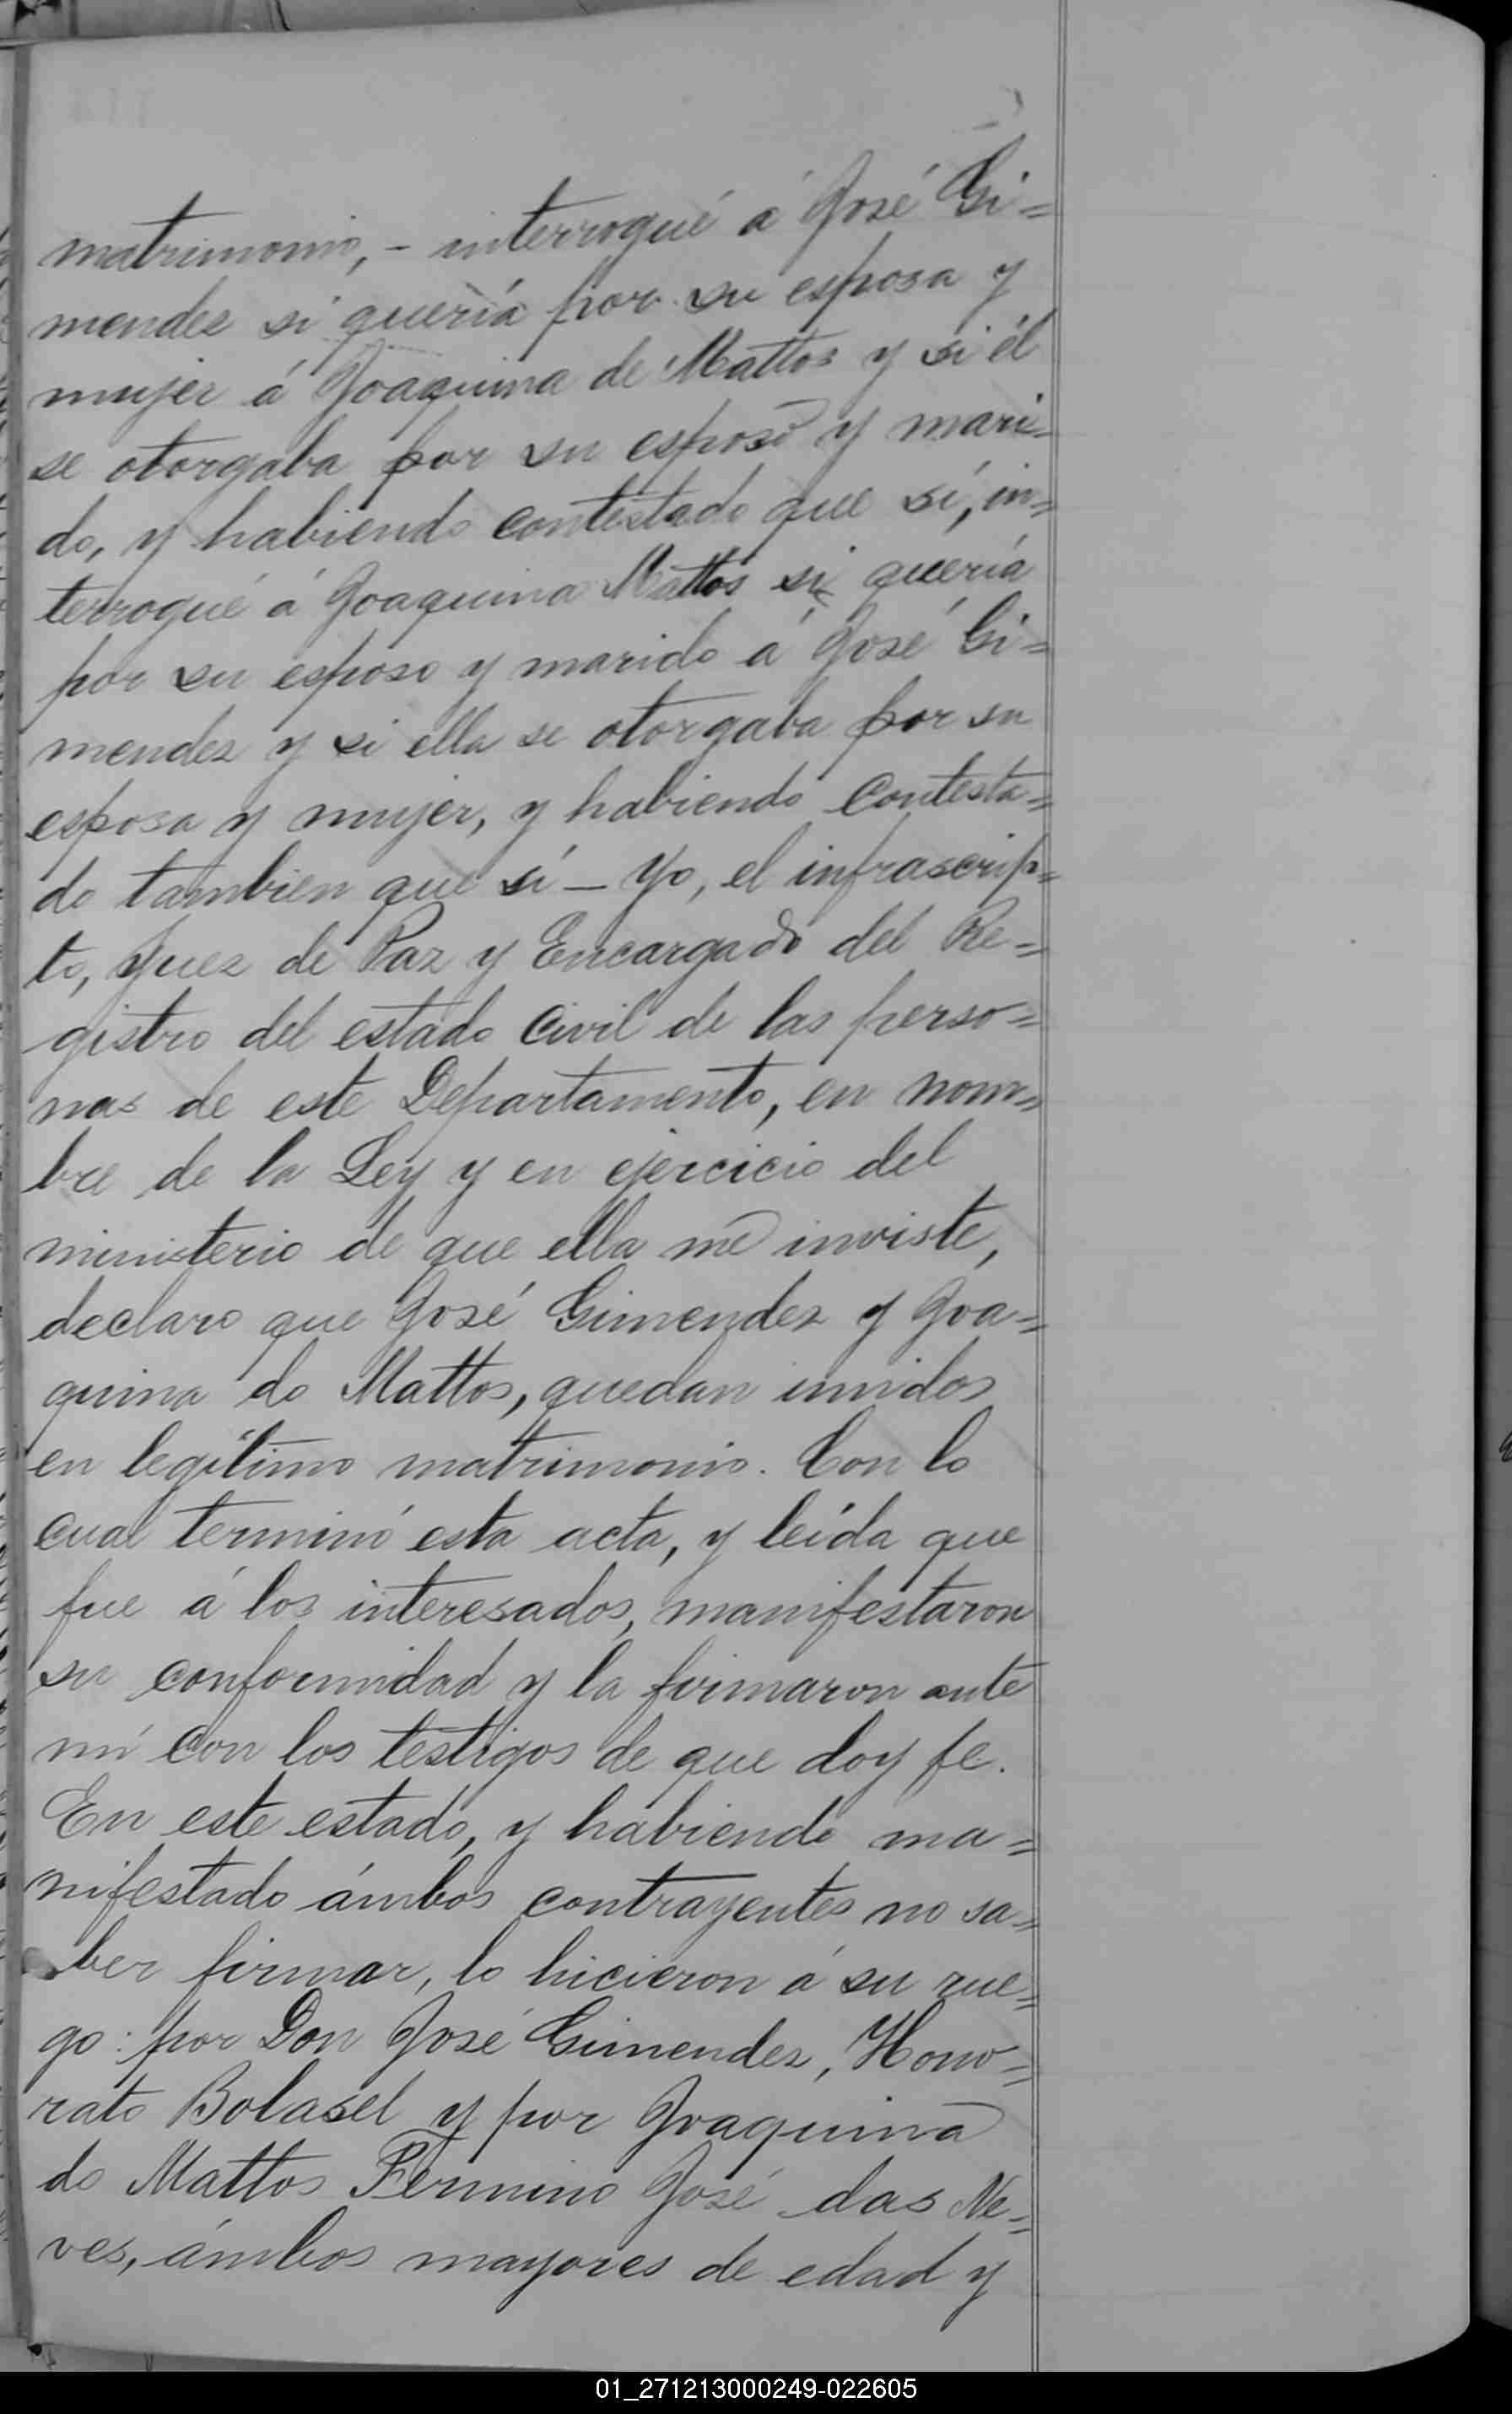 matrimonio, - interrogué á José Gi=
mendez si quería por su esposa y
mujer á Joaquina de Mattos y si él
se otorgaba por su esposo y mari=
do, y habiendo contestado que sí, in=
terrogué á Joaquina Mattos si quería
por su esposo y marido á José Gi=
mendez y si ella se otorgaba por su
esposa y mujer, y habiendo contesta=
do tambien que sí - Yo, el infrascrip=
to, Juez de Paz y Encargado del Re=
gistro del estado civil de las perso=
nas de este Departamento, en nom=
bre de la Ley y en ejercicio del
ministerio de que ella me inviste,
declaro que José Gimendez y Joa=
quina do Mattos, quedan unidos
en legítimo matrimonio. Con lo
cual terminó esta acta, y leída que
fue á los interesados, manifestaron
su conformidad y la firmaron ante
mí con los testigos de que doy fe.
En este estado, y habiendo ma=
nifestado ámbos contrayentes no sa=
ber firmar, lo hicieron á su rue=
go: por Don José Gimendez, Hono=
rato Bolasel y por Joaquina
do Mattos Fermino José das Ne=
ves, ámbos mayores de edad y
01_271213000249-022605